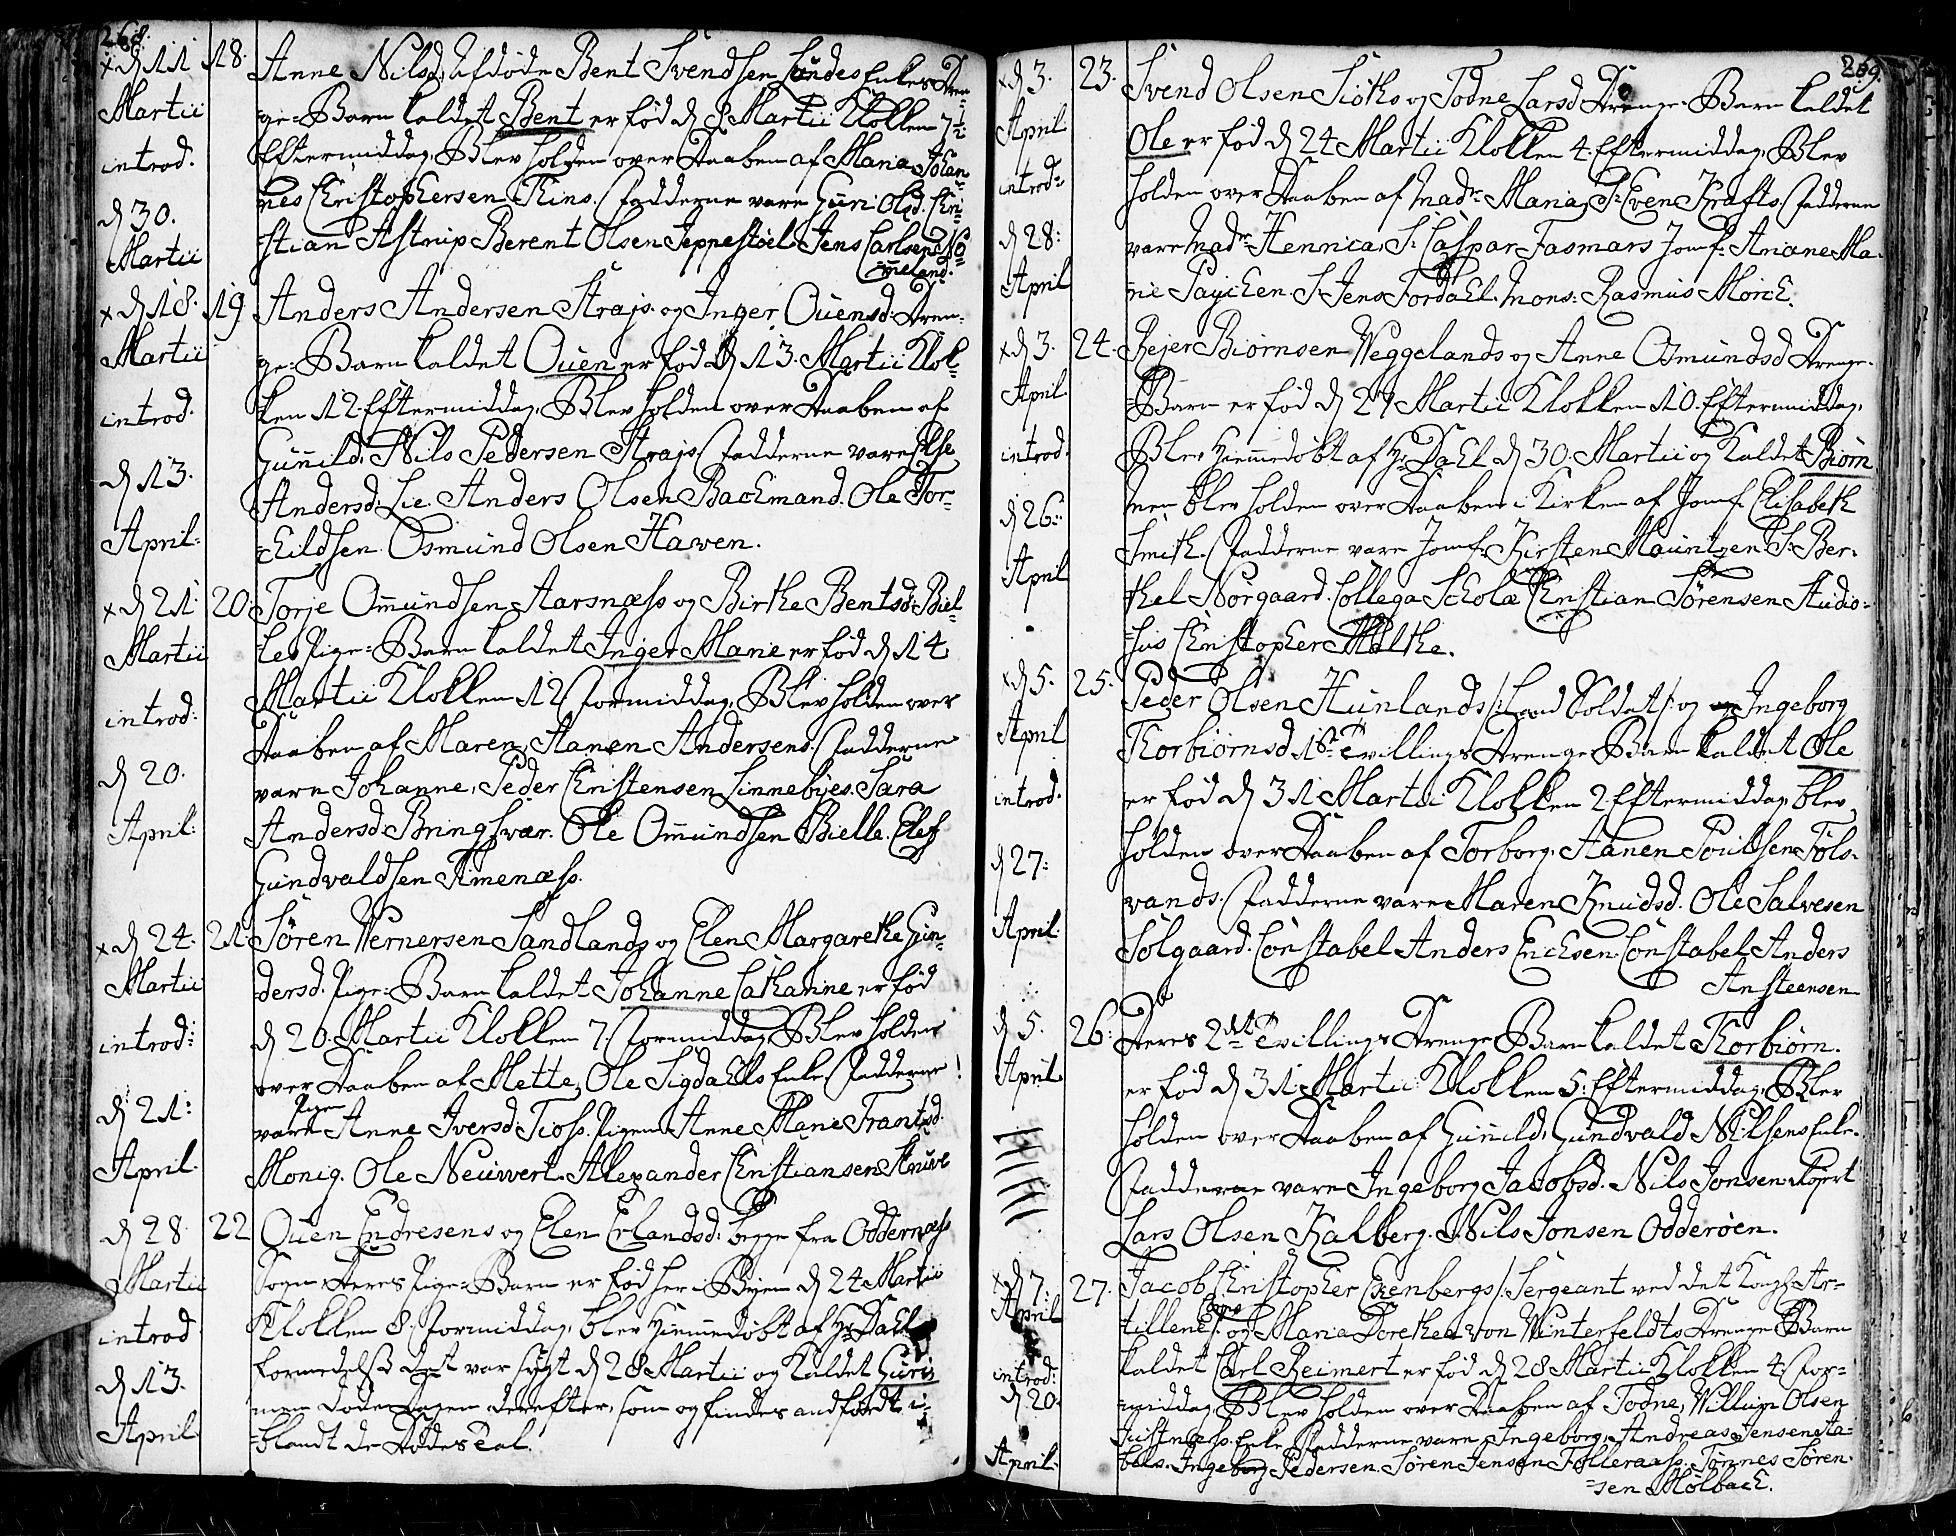 268.
x d 11 Martii introd. d 30. Martii
18. Anne Nilsd, Afdøde Bent Svendsen Lundes Enkes Dren=
=ge=Barn kaldet Bent er fød d 8 Martii Klokken 7½
Eftermiddag, Blev holden over Daaben af Maria, Johan=
nes Christophersen Thins. Fadderne vare Guri Olsd. Chri=
=stian Astrup Berent Olsen Jeppestøel. Jens Carlsen No=
=meland.
x d 18. Martii introd. d 13. April:
19 Anders Andersen Strajs. og Inger Ouensd. Dren=
ge=Barn kaldet Ouen er fød d 13. Martii Klok=
ken 12 Eftermiddag, Blev holden over Daaben af
Gunild, Nils Pedersen Strajs. Fadderne vare Else
Andersd. Lie. Anders Olsen Bachmand. Ole Tor=
=kildsen. Osmund Olsen Haven.
x d 21 Martii introd: d 20. April:
20. Torje Omundsen Aarsnæss og Birthe Bentsd. Biel=
=les Pige=Barn kaldet Inger Marie er fød d 14
Martii Klokken 12 Formiddag, Blev holden over
Daaben af Maren, Aanen Andersens. Fadderne
vare Johanne, Peder Christensen Linnebyes. Sara
Andersd. Bringsvær. Ole Omundsen Bielle. Elef
Gundvaldsen Timenæss.
x d 24. Martii introd: d 21: April.
21. Søren Wernersen Sandlands og Elen Margarethe Gun=
dersd. Pige=Barn kaldet Johanne Cathanne er fød
d 20. Martii Klokken 7. Formiddag, Blev holden
over Daaben af Mette, Ole Sigdahls Enke. Fadderne
vare Pigen Anne Iversd Tioss. Pigen Anne Marie Frantsd.
Monig. Ole Neuwert. Alexander Christiansen Struve
d 28 Martii introd d 13. April
22 Ouen Endresens og Elen Erlandsd. begge fra Oddernæss
Sogn deres Pige=Barn er fød her i Byen d 24 Martii
Klokken 8. Formiddag, blev Hiemmedøbt af Hr Dahl
formedelst det var sygt d 28 Martii og Kaldet Guri
men døde dagen derefter, som og findes andført i=
=blandt de Dødes Tal.
269.
x d 3. April introd= d 28: April
23. Svend Olsen Siøths og Todne Larsd Drenge=Barn kaldet
Ole er fød d 24 Martii Klokken 4. Eftermiddag, Blev
holden over Daaben af Madr Maria, Sr Even Krafts. Fadderne
vare Madr Hennica, Sr Caspar Fasmars Jomf: Ariane Ma=
rie Paychen. Sr Jens Fordahl. Mons: Rasmus Mørch.
x d 3. April introd. d 26: April
24. Rejer Biørnsen Weggelands og Anne Osmundsd Drenge=
=Barn er fød d 27 Martii Klokken 10. Eftermiddag,
Blev Hiemmedøbt af Hr Dahl d 30. Martii og kaldet Biørn
men blev holden over Daaben i Kirken af Jomf. Elisabeth
Smith. Fadderne vare Jomf. Kirsten Mauritzen. Sr Ber=
thel Nørgaard. Collega Scholæ Christian Sørensen Studio=
=sus Christopher Malthe.
x d 5. April introd. d 27: April.
25. Peder Olsen Hunlands /: Land Soldat :/ og Ingeborg
Thorbiørnsd 1ste Tvillings Drenge Barn kaldet Ole
er fød d 31 Martii Klokken 2 Eftermiddag, blev
holden over Daaben af Torborg, Aanen Poulsen Føls=
vands. Fadderne vare Maren Knudsd. Ole Salvesen
Solgaard. Constabel Anders Erichsen. Constabel Anders
Ansteensen
d 5. April
26: Deres 2det Tvillings Drenge Barn kaldet Thorbiørn.
er fød d 31. Martii Klokken 5. Eftermiddag, Blev
holden over Daaben af Gunild, Gundvald Nilsens Enke.
Fadderne vare Ingeborg Jacobsd. Nils Jonsen Røjert
Lars Olsen Kalberg. Nils Jonsen Odderøen.
x d 7: April introd: d 20. April.
27. Jacob Christopher Ekenbergs /: Sergeant ved det Kongl: Ar=
tillerie Corps :/ og Maria Dorethea von Winterfeldts Drenge Barn
kaldet Carl Reimert er fød d 28 Martii Klokken 4. For=
=middag, Blev holden over Daaben af Todne, Willum Olsen
Justnæss Enke. Fadderne vare Ingeborg, Andreas Jensen Aa=
bels. Ingeborg Pedersen. Søren Jensen Følleraass. Tønnes Søren=
=sen Mølbach.